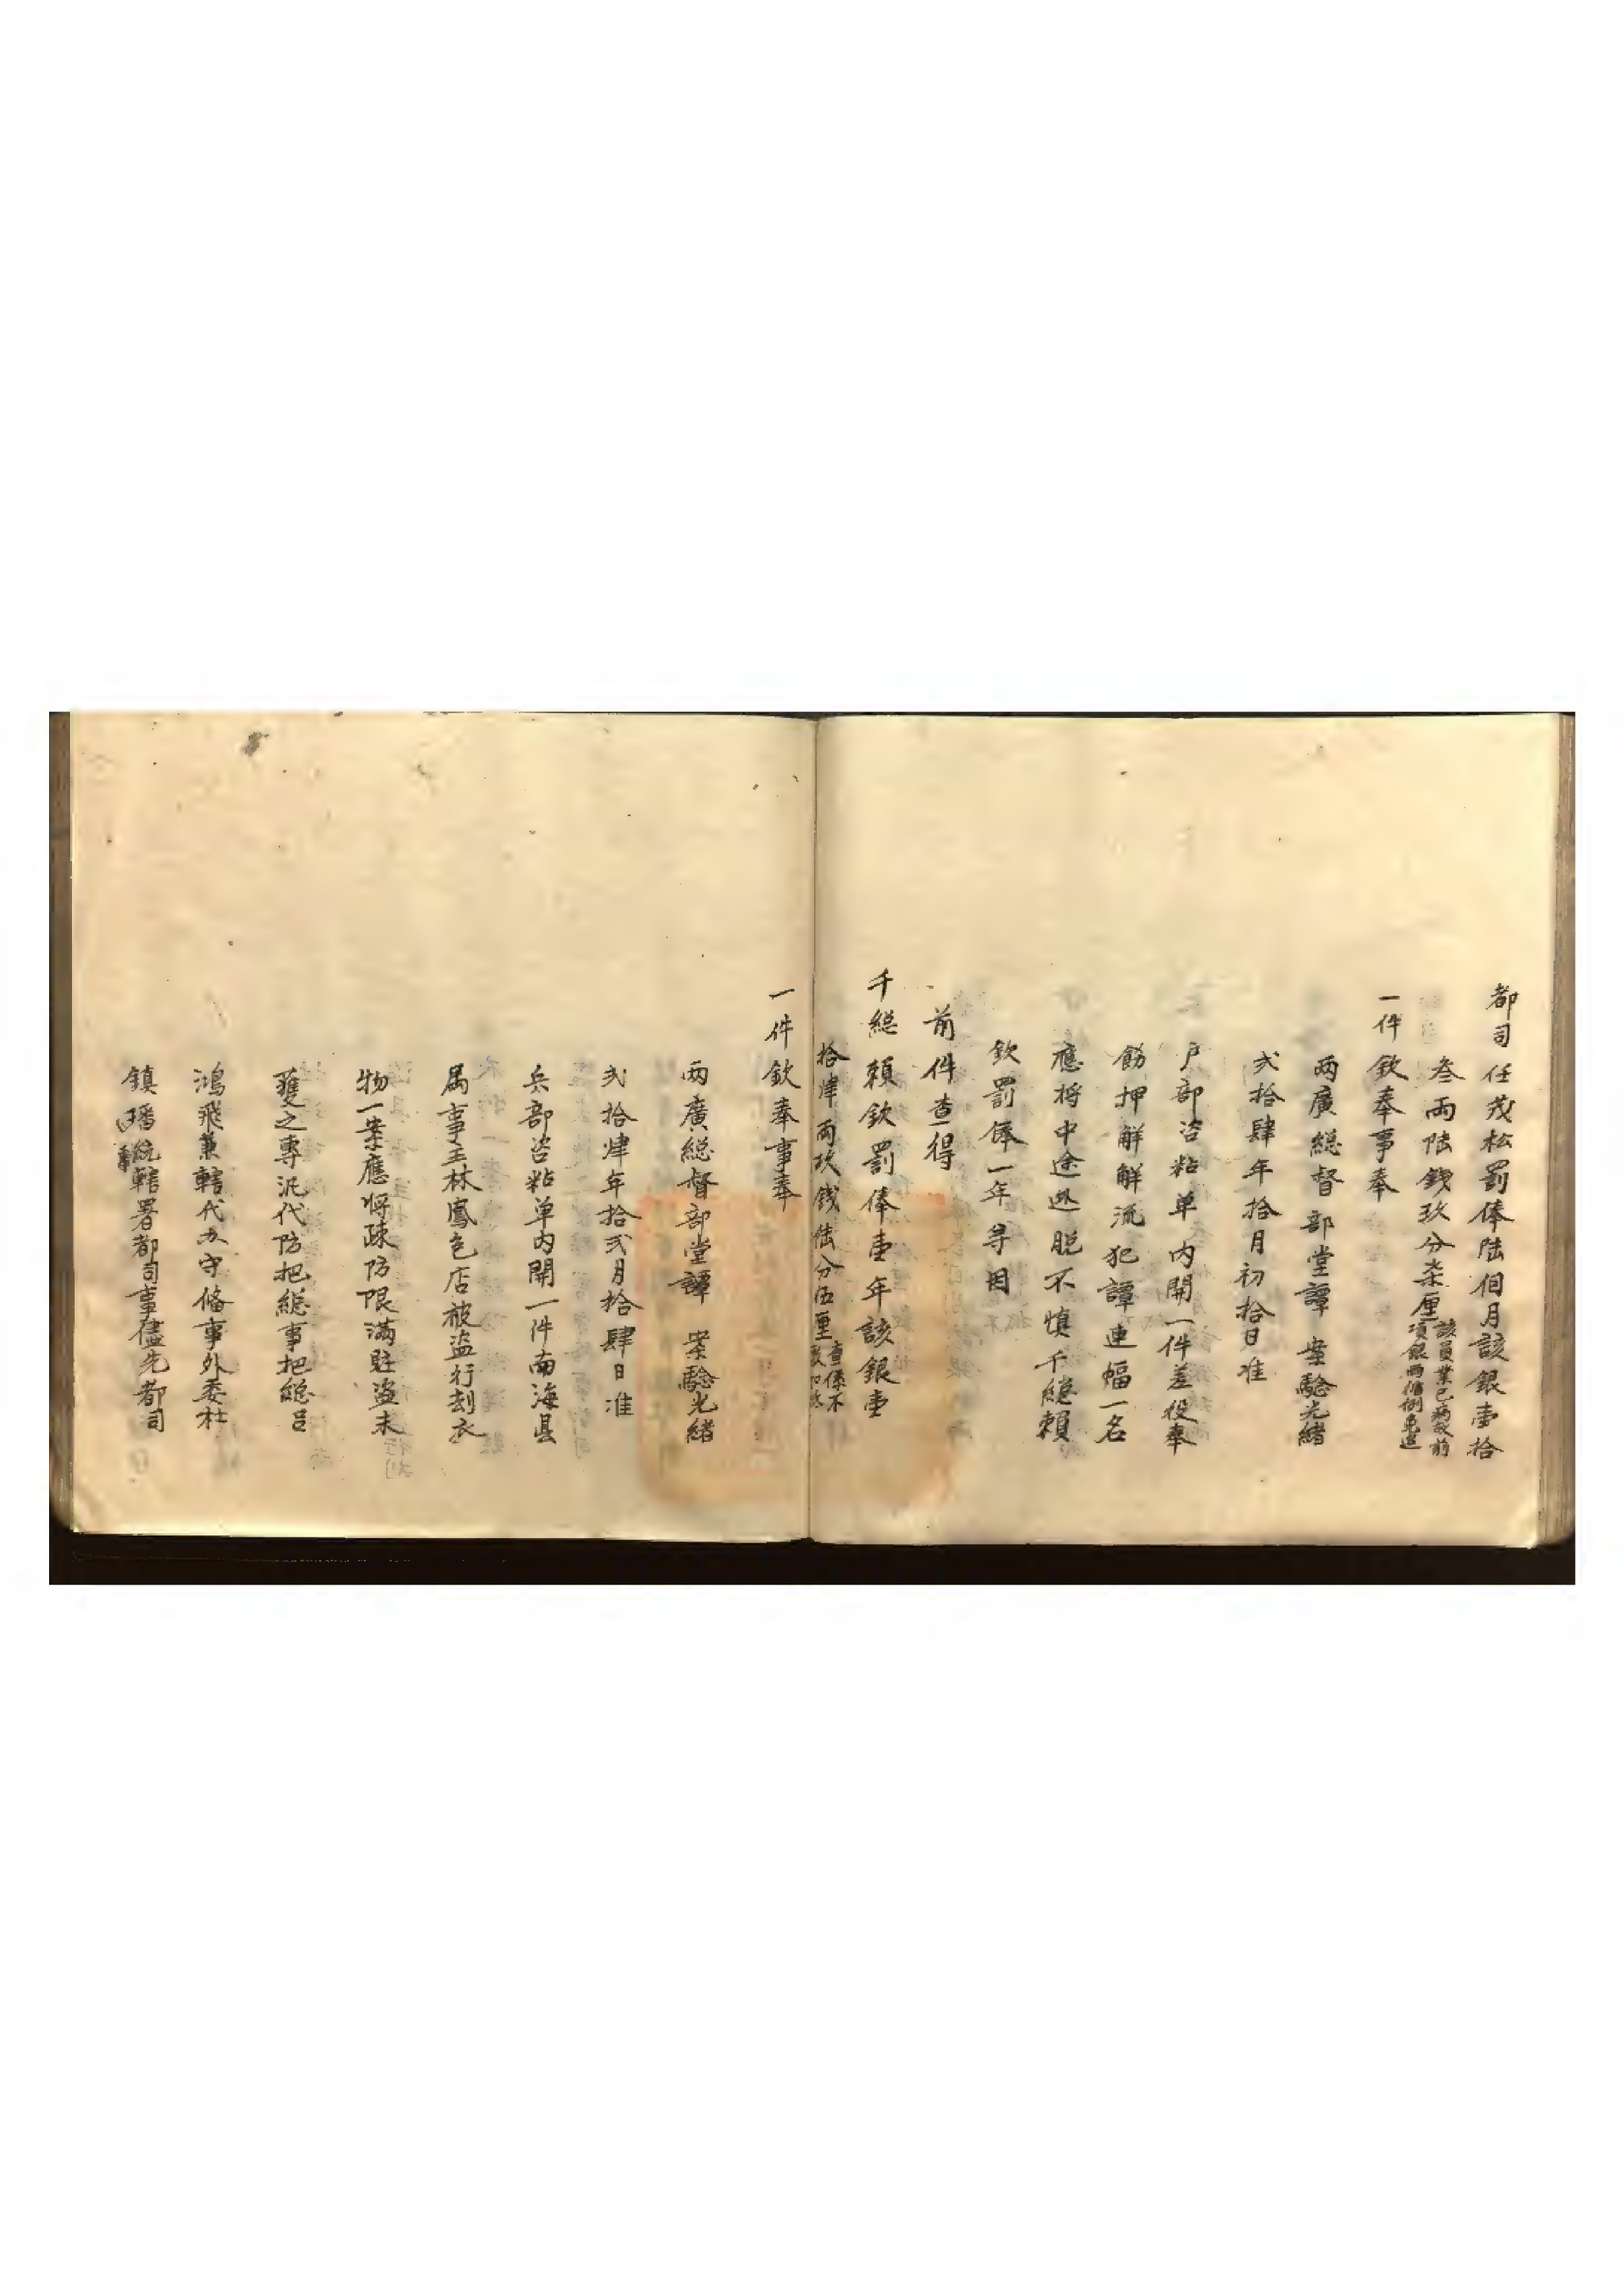 都司任茂松罰俸陆個月該銀壹拾
叁兩陆錢玖分柒厘
該員業已病故前
項銀兩循例免追
一件欽奉事奉
兩廣総督部堂譚 案驗光緒
弍拾肆年拾月初拾日准
户部咨粘单内開一件差役奉
飭押解解流犯譚連幅一名
應将中途逃脱不慎千総頼
欽罰俸一年等因
前件查得
千総頼欽罰俸壹年該銀壹
拾肆兩玖钱陆分伍厘
查係不
兩廣総督部堂譚 案驗光緒
一件欽奉事奉
弍拾肆年拾弍月拾肆日准
兵部咨粘单内開一件南海县
属事主林鳳色店被盗行刼衣
物一案應将疎防限滿賍盗未
獲之專汛代防把総事把総吕
鴻飛兼轄代办守俻事外委杜
鎮璠統轄署都司事儘先都司